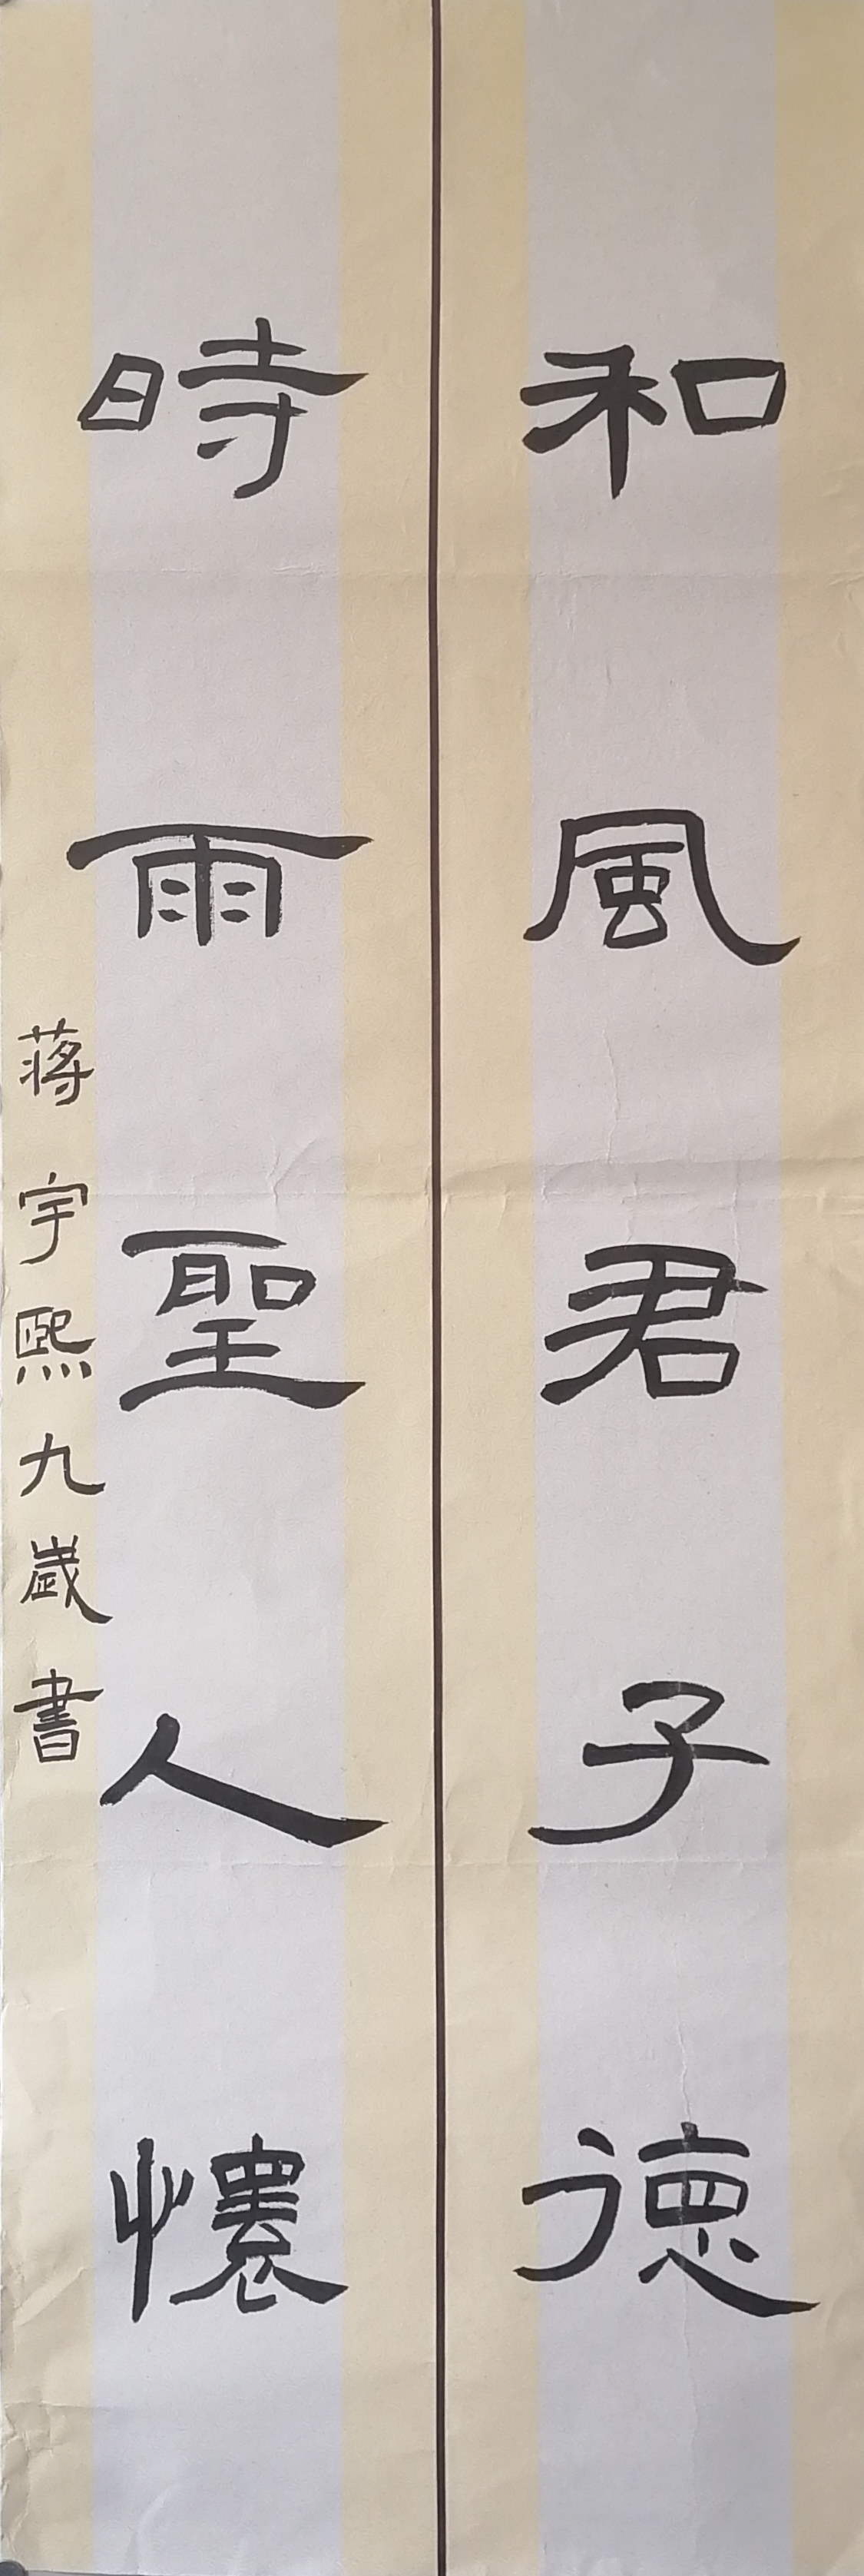 和風君子德
時雨聖人懷
蔣宇熙九歲書